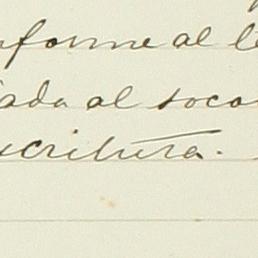 nforme al le
iada al soco
scritura.